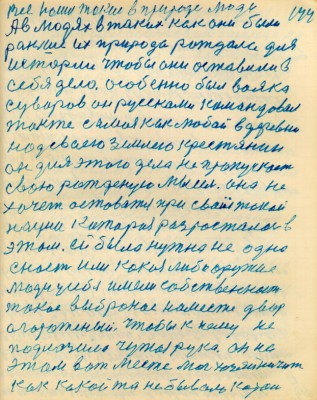 все наши такие в природе люди 144
А в людях в таких как они были
ранние их природа рождала для
истории чтобы они оставили в
себя дело. особенно был вояка
суваров он русскими командовал
также самая как любой в деревни
над своею землею крестянин
он для этого дела не пропускает
свою рожденую мысел. она не
хочет остоватся при свой такой
нации Которая разросталась в
этом. ей была нужна не одно
сност или какая либо оружие
люди у себя имели собственност
такое выброное на месте двор
огороженый. чтобы к нему не
подлючила чужая рука. он на
этом вот месте мог хозяйничит
как какой та небывалы, казаи